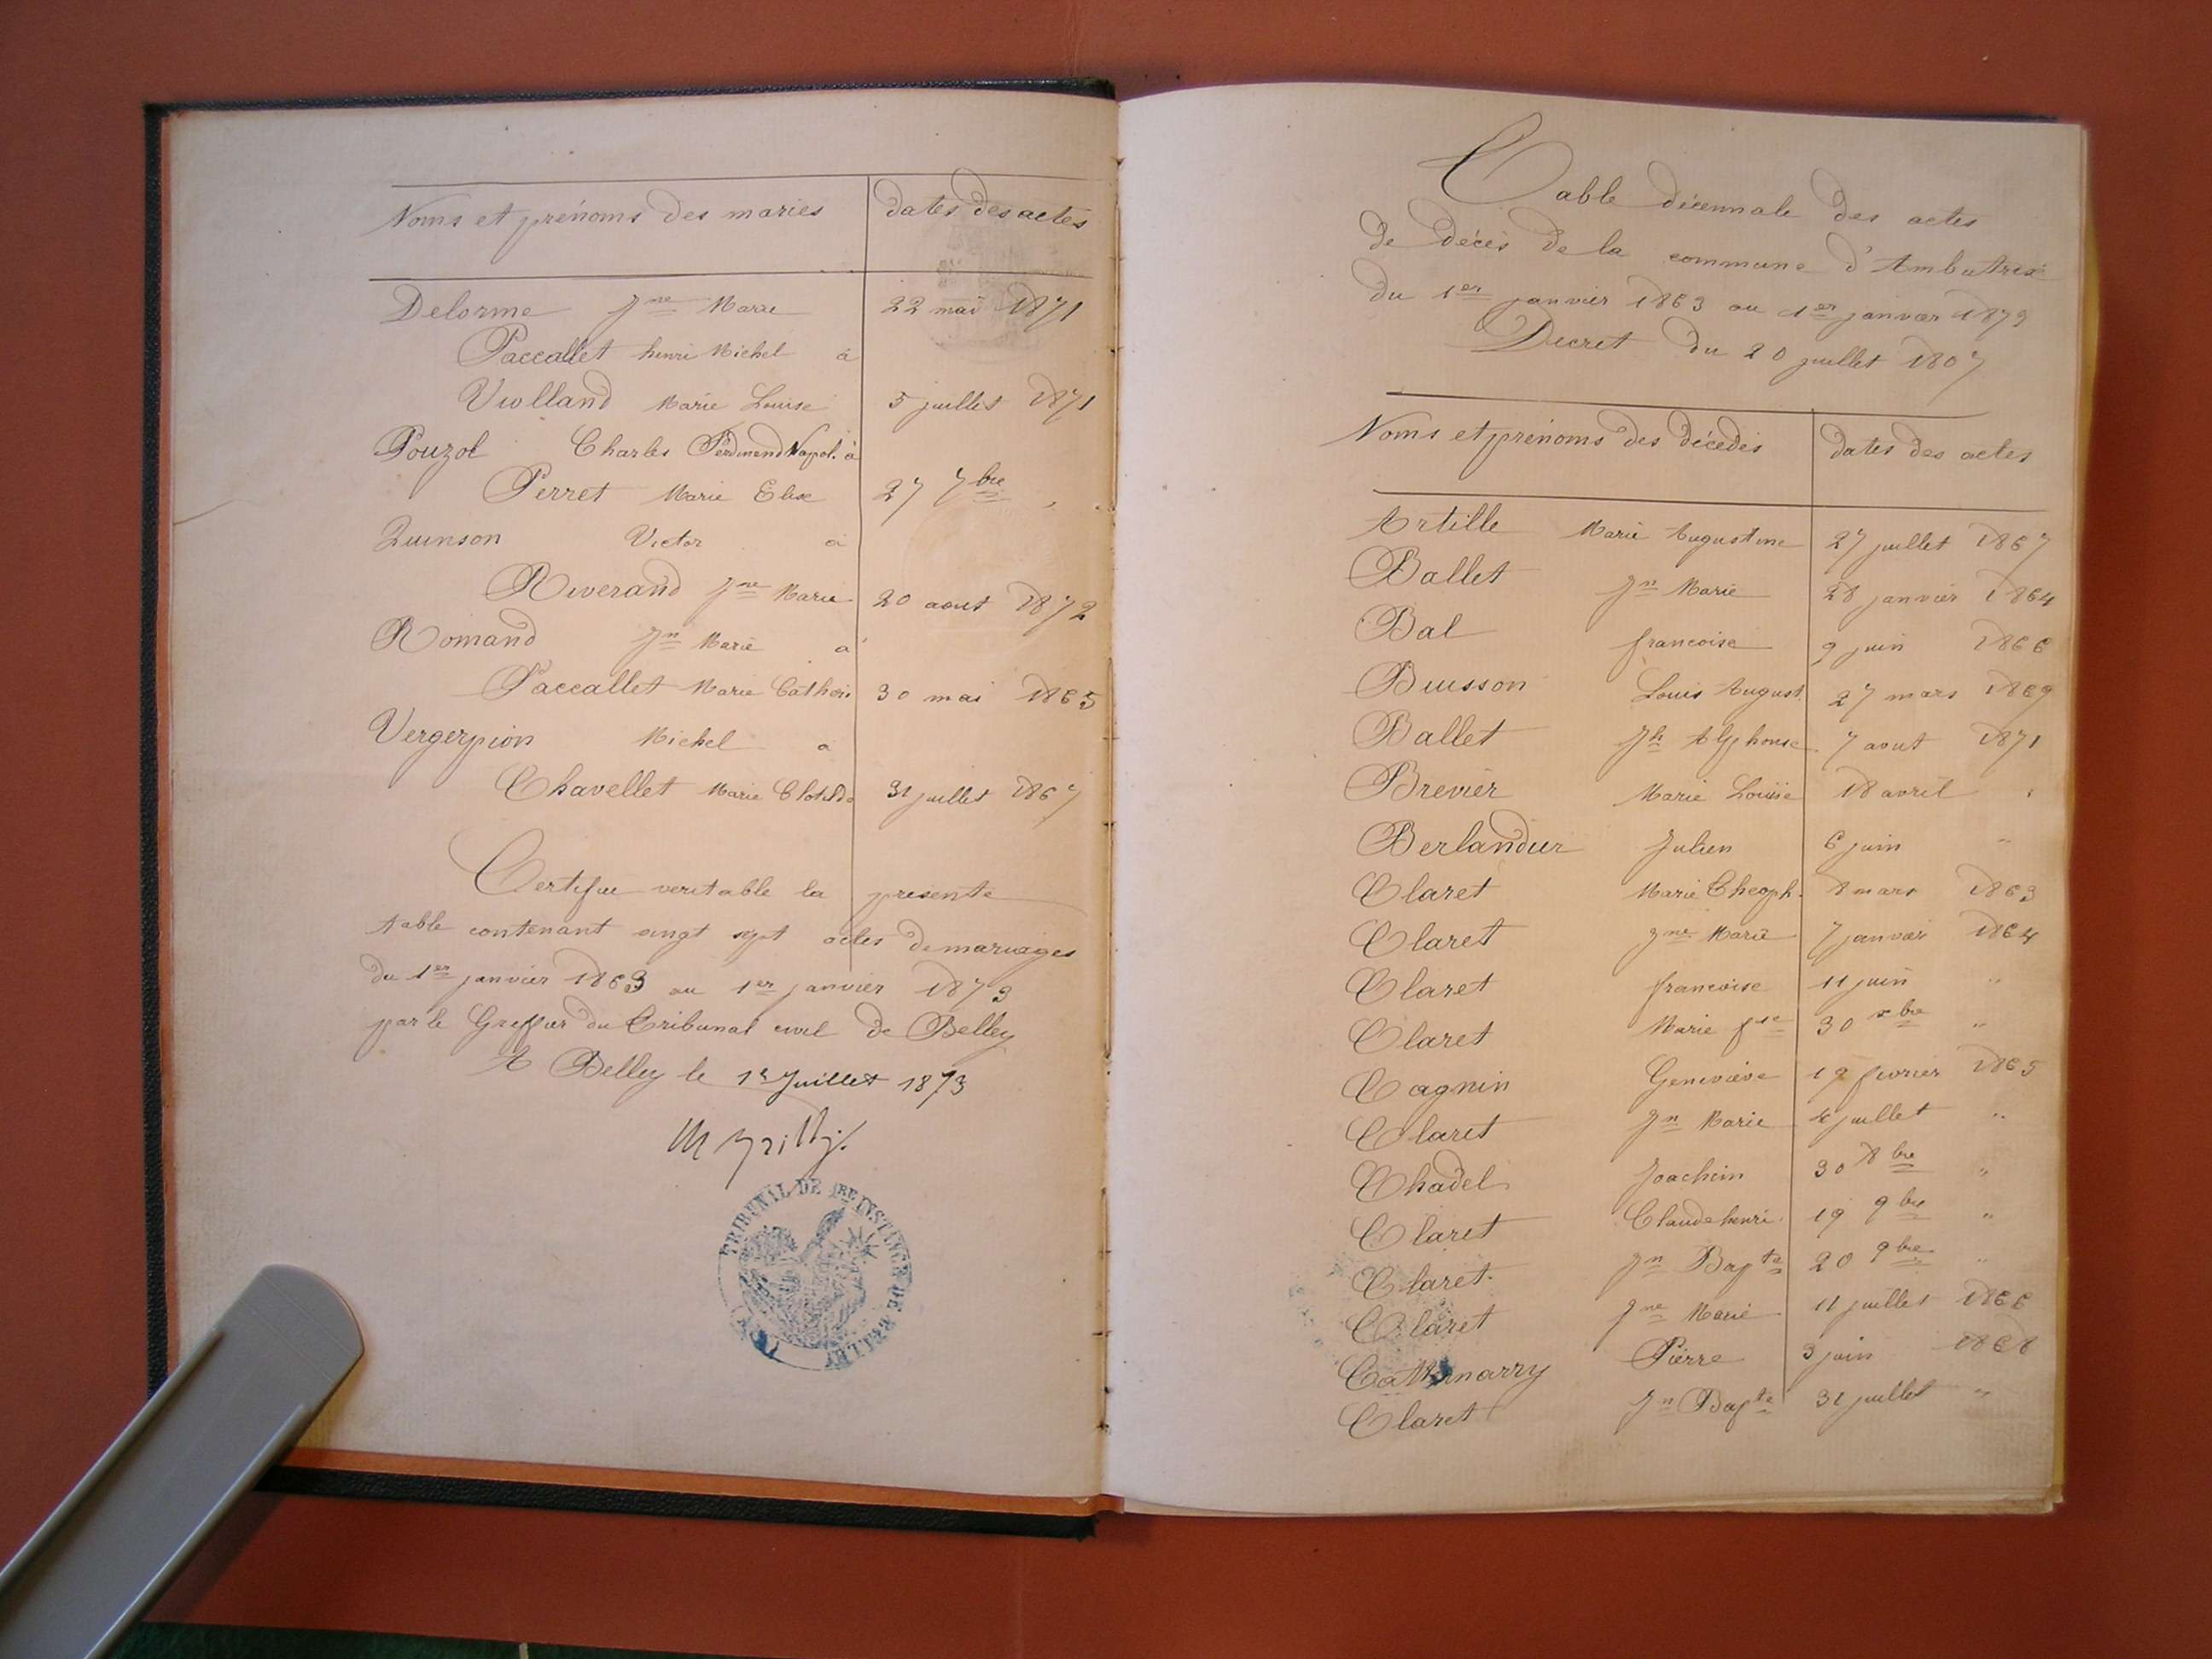 Noms et prénoms des mariés dates des actes
Delorme Jne Marie 22 mai 1871
Paccallet henri Michel à
Violland Marie Louise 5 juillet 1871
Pouzol Charles Ferdinand Napol. à
Perret Marie Elise 27 7bre "
Quinson Victor à
Riverand Jne Marie 20 aout 1872
Romand Jn Marie à
Paccallet Marie Cathéri 30 mai 1865
Vergerpion Michel à
Chavellet Marie Clotilde 31 juillet 1867
Certifié veritable la presente
table contenant vingt sept actes de mariages
du 1er janvier 1863 au 1er janvier 1873
par le Greffier du Tribunal civil de Belley
A Belley le 1er Juillet 1873
TRIBUNAL DE 1RE INSTANCE DE BELLEY (AIN)
Table décennale des actes
de décès de la commune d'Ambutrix
du 1er janvier 1863 au 1er janvier 1873
Decret du 20 juillet 1807
Noms et prénoms des décédés dates des actes
Artille Marie Augustine 27 juillet 1867
Ballet Jn Marie 28 janvier 1864
Bal francoise 9 juin 1866
Buisson Louis August. 27 mars 1869
Ballet Jh Alphonse 7 aout 1871
Brevier Marie Louise 18 avril "
Berlandier Julien 6 juin "
Claret Marie Theoph. 8 mars 1863
Claret Jne Marie 7 janvier 1864
Claret francoise 11 juin "
Claret Marie fse 30 xbre "
Cagnin Geneviève 19 fevrier 1865
Claret Jn Marie 4 juillet "
Chadel Joachim 30 8bre "
Claret Claude henri 19 9bre "
Claret Jn Bapte 20 9bre "
Claret Jne Marie 11 juillet 1866
Pierre 3 juin 1868
Claret Jn Bapte 31 juillet "